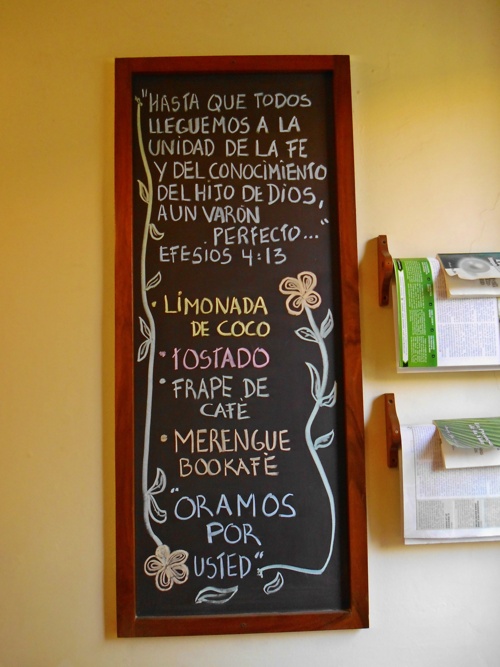 "HASTA QUE TODOS
LLEGUEMOS A LA
UNIDAD DE LA FE
Y DEL CONOCIMIENTO
DEL HIJO DE DIOS,
A UN VARÓN
PERFECTO..."
EFESIOS 4:13
• LIMONADA
DE COCO
• TOSTADO
• FRAPE DE
CAFÈ
• MERENGUE
BOOKAFÈ
"ORAMOS
POR
USTED"